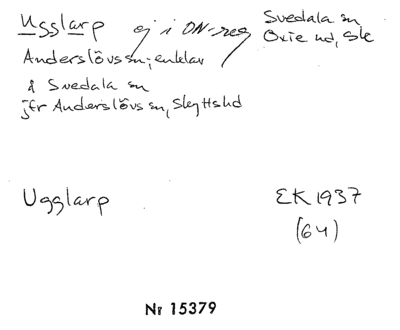 Ugglarp ej i ON-reg Svedala sn
Oxie hd, Sk
Anderslövs sn; enklav
å Svedala sn
jfr Anderslövs sn, Skyttshd
Ugglarp EK 1937
(64)
Nr 15379